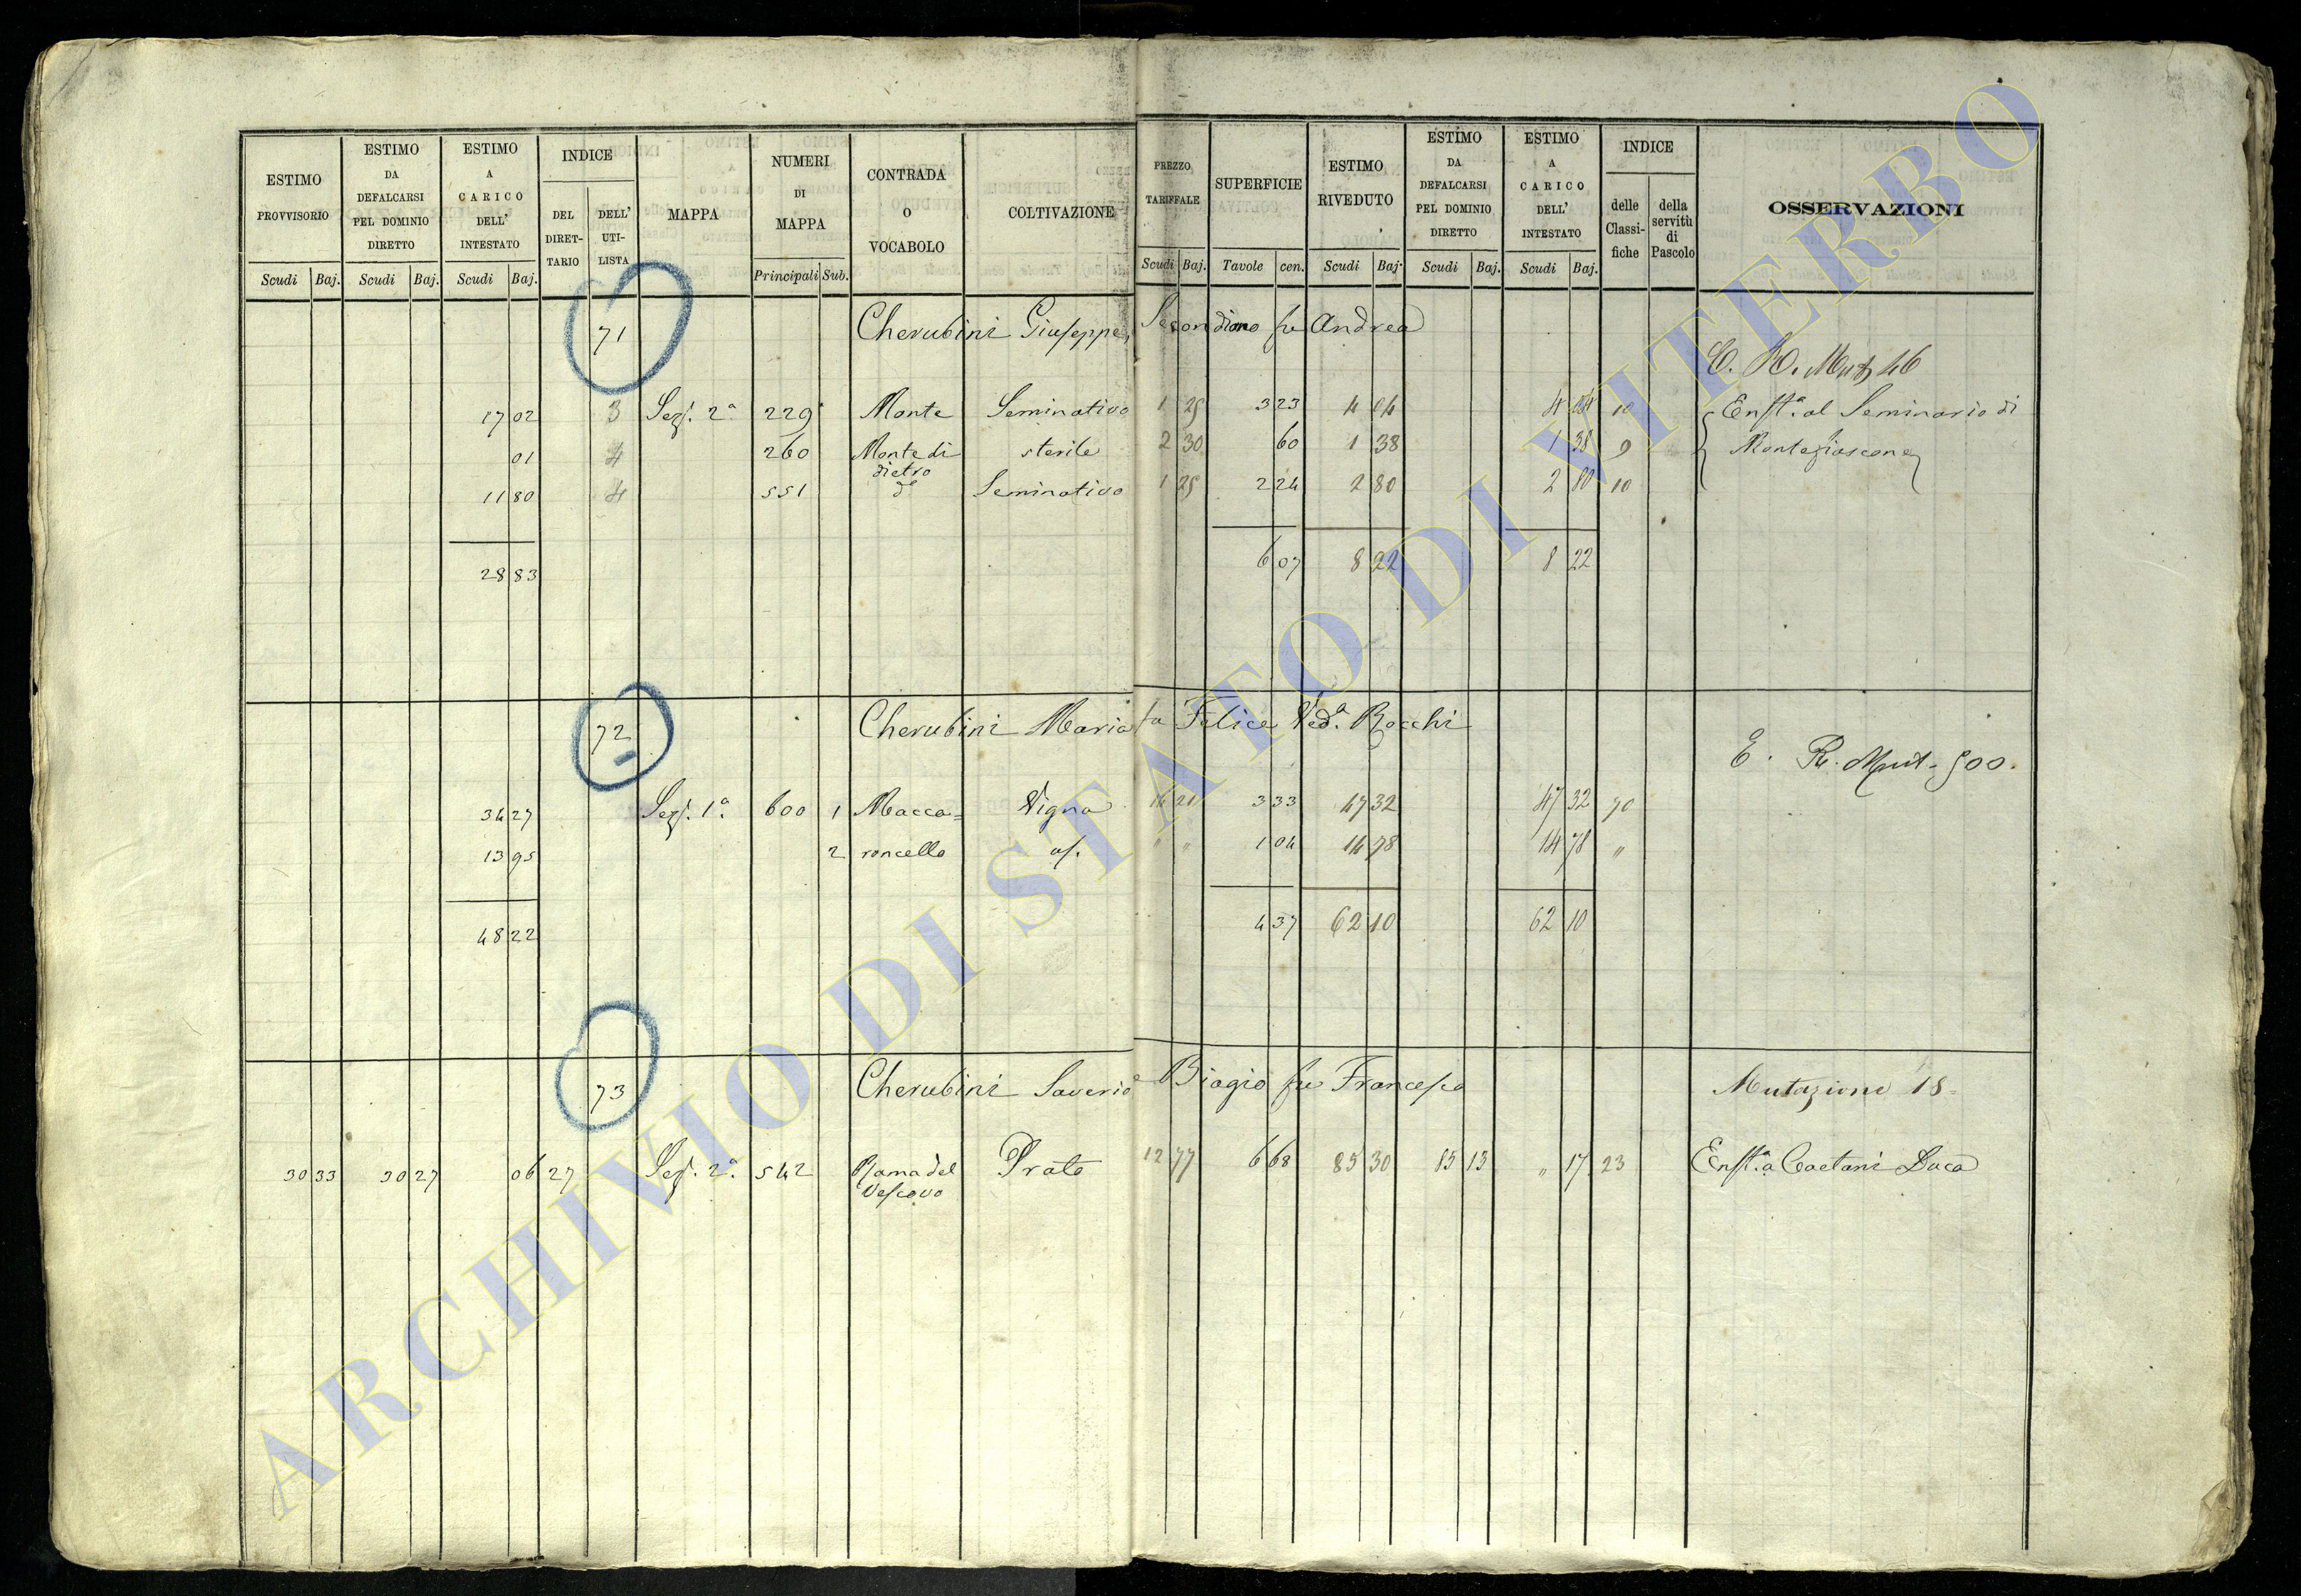 ESTIMO PROVVISORIO
ESTIMO DA DEFALCARSI PEL DOMINIO DIRETTO
ESTIMO A CARICO DELL' INTESTATO
INDICE
DEL DIRET-TARIO
DELL' UTI-LISTA
MAPPA
NUMERI DI MAPPA
CONTRADA O VOCABOLO
COLTIVAZIONE
PREZZO TARIFFALE
SUPERFICIE
ESTIMO RIVEDUTO
ESTIMO DA DEFALCARSI PEL DOMINIO DIRETTO
ESTIMO A CARICO DELL' INTESTATO
INDICE
delle Classi-fiche
della servitù di Pascolo
OSSERVAZIONI
Scudi Baj. Scudi Baj. Scudi Baj. Principali Sub. Scudi Baj. Tavole cen. Scudi Baj. Scudi Baj. Scudi Baj.
71 Cherubini Giuseppe, Secondiano fu Andrea
Mut 46
17 02 3 Sez. 2ª 229 Monte Seminativo 1 25 3 23 4 04 4 04 10 Enfta. al Seminario di
01 4 260 Monte di dietro sterile 2 30 60 1 38 1 38 9 Montefiascone
11 80 4 551 do Seminativo 1 25 2 24 2 80 2 80 10
28 83 6 07 8 22 8 22
72 Cherubini Maria fu Felice Veda. Rocchi
E. R. Mut. 500.
34 27 Sez. 1ª 600 1 Macca= Vigna 14 21 3 33 47 32 47 32 70
13 95 2 roncello " " 1 04 14 78 14 78 "
48 22 4 37 62 10 62 10
73 Cherubini Saverio Biagio fu Francesco Mutazione 18=
30 33 30 27 06 27 Sez. 2ª 542 Rama del Vescovo Prato 12 77 6 68 85 30 85 13 " 17 23 Enfta. a Caetani Duca
ARCHIVIO DI STATO DI VITERBO